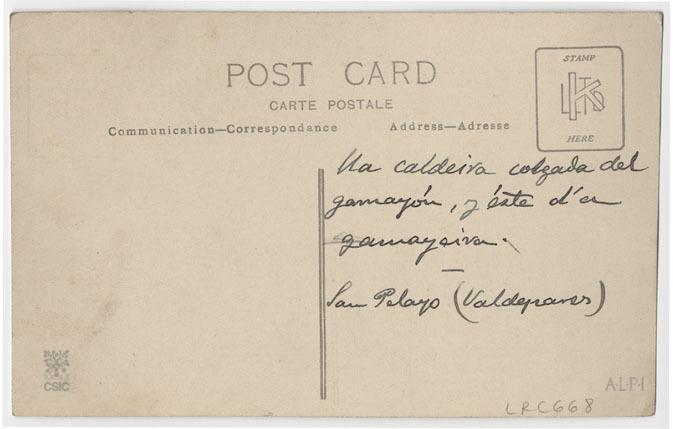 POST CARD
CARTE POSTALE
Communication—Correspondance
Address—Adresse
STAMP
HERE
Ua caldeira colgada del
gamayón, y éste d'a
gamayeira.
San Pelayo (Valdepares)
CSIC
A·L·P·I
LRC668